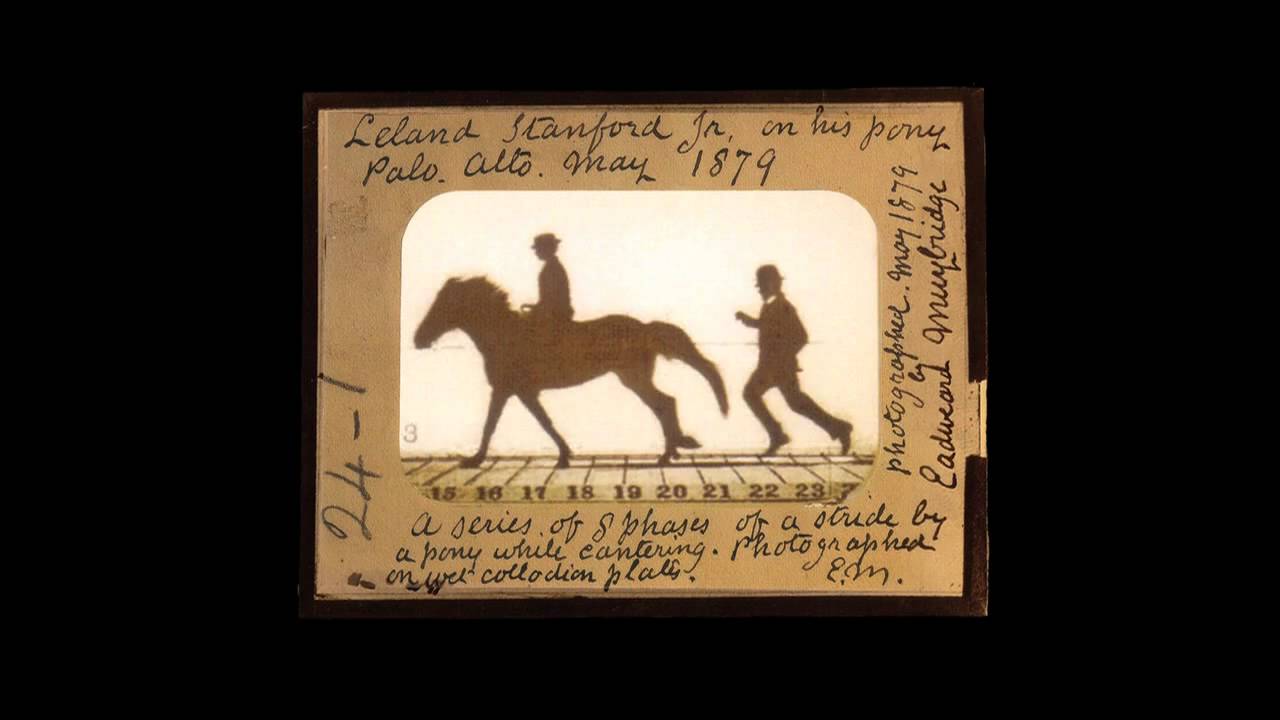 Leland Stanford Jr. on his pony
Palo. Alto. May 1879
photographed. May 1879
by
Eadweard Muybridge
24-1
3
15 16 17 18 19 20 21 22 23
A series of 8 phases of a stride by
a pony while cantering. Photographed
on wet collodion plates. E.M.